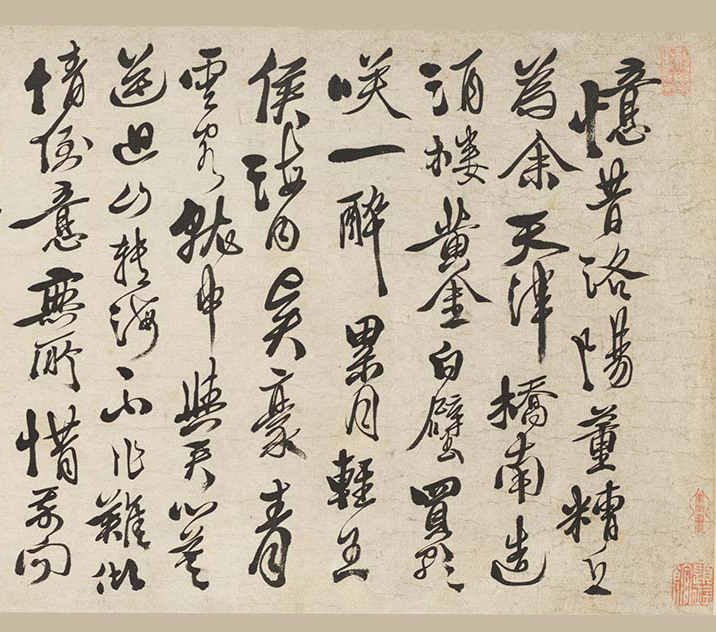 憶昔洛陽董糟丘
為余天津橋南造
酒樓黃金白璧買歌
咲一醉累月輕王
侯海內賢豪青
雲客就中與君心莫
逆迴山轉海不作難傾
情倒意無所惜我向